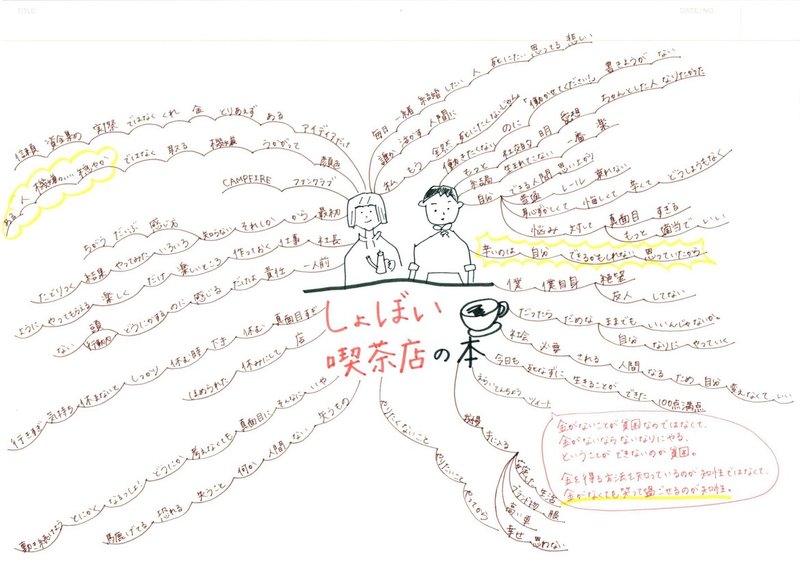 TITLE
DATE/NO.
しょぼい
喫茶店の本
毎日 一緒 結婚 したい 人 死にたい 思ってる 悲しい
誰か 活かす 人間に 「働かせてください!」 書きようが ない
私 もう 全然 死にたくないじゃん
働きたくない のに ちゃんとした人 なりたがった
もっと 社交的 明 妄想
結局 生まれてこない 一番 楽
自分 できる人間 思い上がり
普通 レール 乗れない
恥ずかしくて 悔しくて 辛くて どうしようもなく
悩み 対して 真面目 すぎる
もっと 適当で いい
辛いのは 自分 できるかもしれない 思っていたから
僕 僕自身 絶望
友人 してない
だったら だめな ままでも いいんじゃないか。
自分 なりに やっていく
社会 必要 される 人間 なる ため 自分 変えなくて いい
今日も 死なずに 生きることが できた 100点満点
えらいてんちょう ツイート
金がないことが貧困なのではなくて、
金がないならないなりにやる、
ということができないのが貧困。
金を得る方法を知っているのが知性ではなくて、
金がなくても笑って過ごせるのが知性。
生活
ブランド物 服
高い車
幸せ 思わない
やりたくないこと やりたいこと やってから
いや そんなに 真面目に 考えなくても どうにか なるっしょ! とにかく 動き続けよう
失うもの ない 人間 何か 失うこと 恐れる 馬鹿げてる
真面目すぎ 休む 下手 休む時 しっかり 休まないと 気持ち 行きすぎ
店 休みにして ほめられた
一人前 責任 だけは 感じる のに どうにかする 行動力 頭 ない
社長 仕事 作っておく 楽しいところ だけ 楽しく やってもらえる ように
最初 から それしか 知らない いろいろ やってみた 結果 たどりつく
感じ方 だいぶ ちがう
CAMPFIRE ファンクラブ
顔色 うかがって 機嫌 取る ではなく 穏やか 機嫌のいい 人 ある
アイディアだけ ある とりあえず 金 くれ ではなく 実際 資金集め 信頼